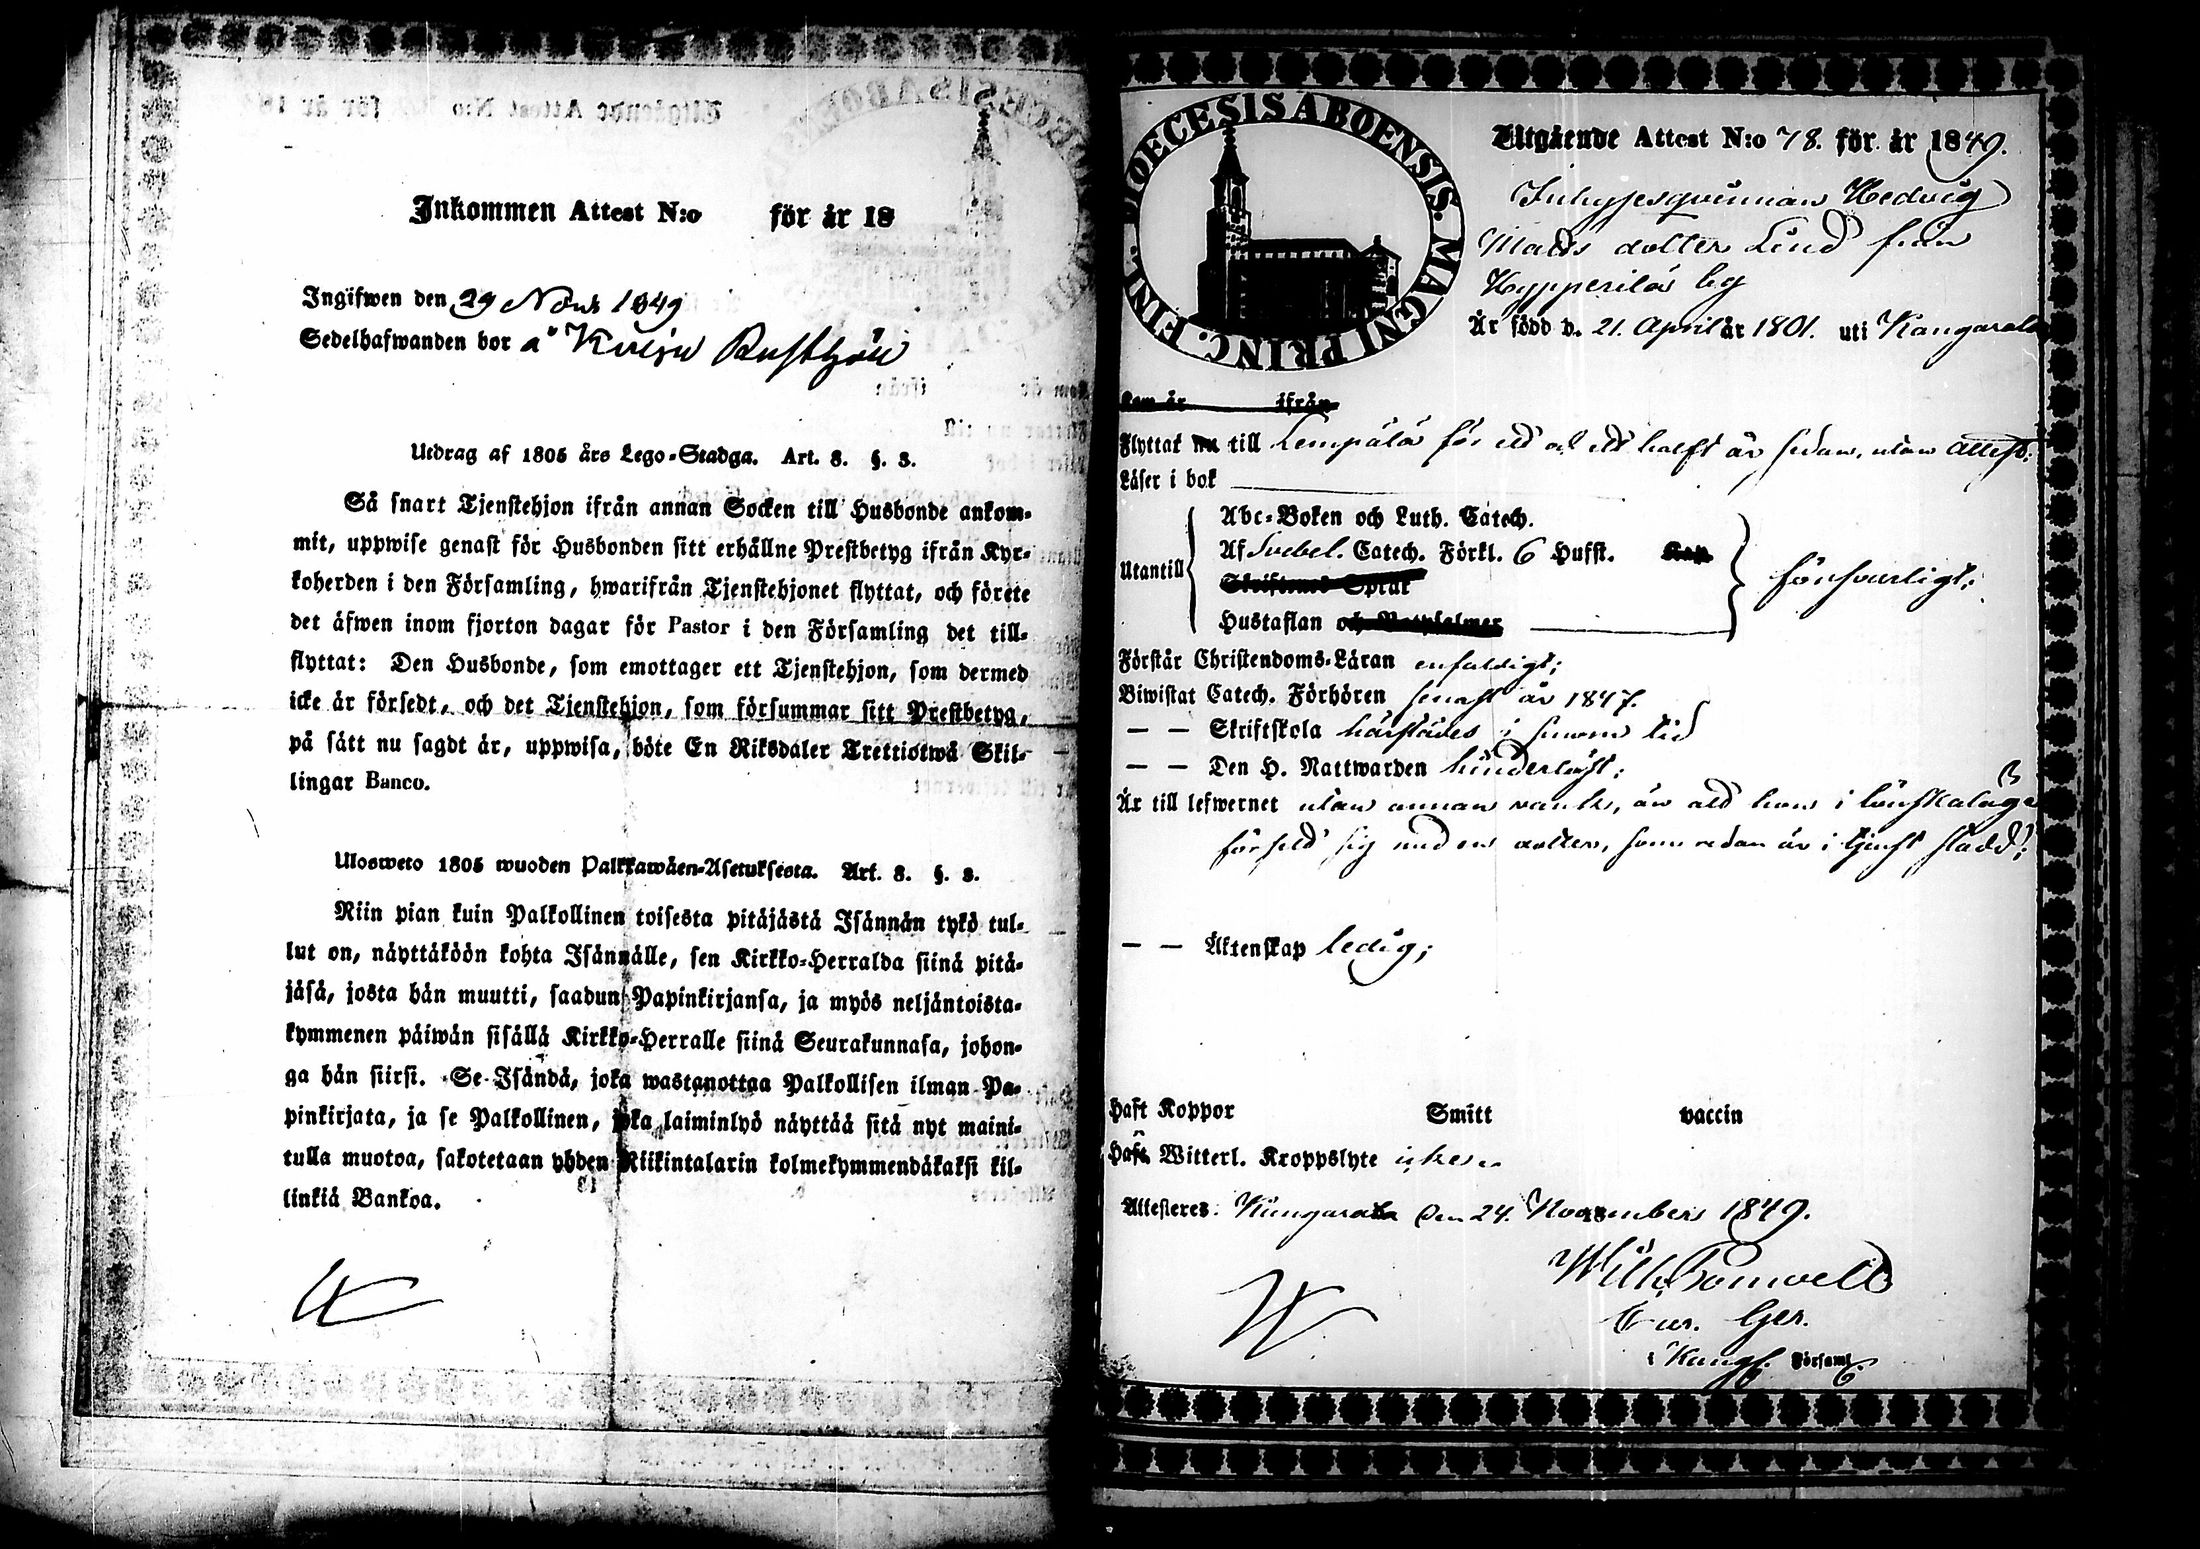 Inkommen Attest N:o för år 18
Ingifwen den 29 Novb 1849
Sedelhafwanden bor å Kvisu Rusthåll
Utdrag af 1805 års Lego-Stadga. Art. 8. §. 3.
Så snart Tjenstehjon ifrån annan Socken till Husbonde ankom-
mit, uppwise genast för Husbonden sitt erhållne Prestbetyg ifrån Kyr-
koherden i den Församling, hwarifrån Tjenstehjonet flyttat, och förete
det äfwen inom fjorton dagar för Pastor i den Församling det till-
flyttat: Den Husbonde, som emottager ett Tjenstehjon, som dermed
icke är försedt, och det Tjenstehjon, som försummar sitt Prestbetyg,
på sätt nu sagdt är, uppwisa, böte En Riksdaler Trettiotwå Skil-
lingar Banco.
Ulosweto 1805 wuoden Palkkawäen-Asetuksesta. Art. 8. §. 3.
Niin pian kuin Palkollinen toisesta pitäjästä Isännän tykö tul-
lut on, näyttäköön kohta Isännälle, sen Kirkko-Herralda siinä pitä-
jäsä, josta hän muutti, saadun Papinkirjansa, ja myös neljäntoista-
kymmenen päiwän sisällä Kirkko-Herralle siinä Seurakunnasa, johon-
ga hän siirsi. Se Isändä, joka wastanottaa Palkollisen ilman Pa-
pinkirjata, ja se Palkollinen, joka laiminlyö näyttää sitä nyt maini-
tulla muotoa, sakotetaan yhden Riikintalarin kolmekymmendäkaksi kil-
linkiä Bankoa.
DIOECESIS ABOENSIS. MAGNI PRINC. FINL.
Utgående Attest N:o 78. för år 1849.
Inhysesqvinnan Hedvig
Matts dotter Lind från
Hypperilä by
Är född d. 21. April år 1801. uti Kangasala
Kom år ifrån
Flyttat nu till Lempälä för ett och ett halft år sedan, utan attest.
Läser i bok
Utantill
Abc-Boken och Luth. Catech.
Af Svebel. Catech. Förkl. 6 Hufst. Kap
Skriftenes Språk
Hustaflan och Botpsalmer
försvarligt;
Förstår Christendoms-Läran enfaldigt;
Biwistat Catech. Förhören senast år 1847.
— — Skriftskola härstädes i sinom tid
— — Den H. Nattwarden hinderlöst;
Är till lefwernet utan annan vank, än att hon i lönskaläge
försett sig med en dotter, som redan är i tjenst stadd;
— — Äktenskap ledig;
Haft Koppor Smitt vaccin
Haft Witterl. Kroppslyte icke
Attesteres: Kangasala den 24. November 1849.
Wilh.
Cur. Ger.
i Kangs. Församl.